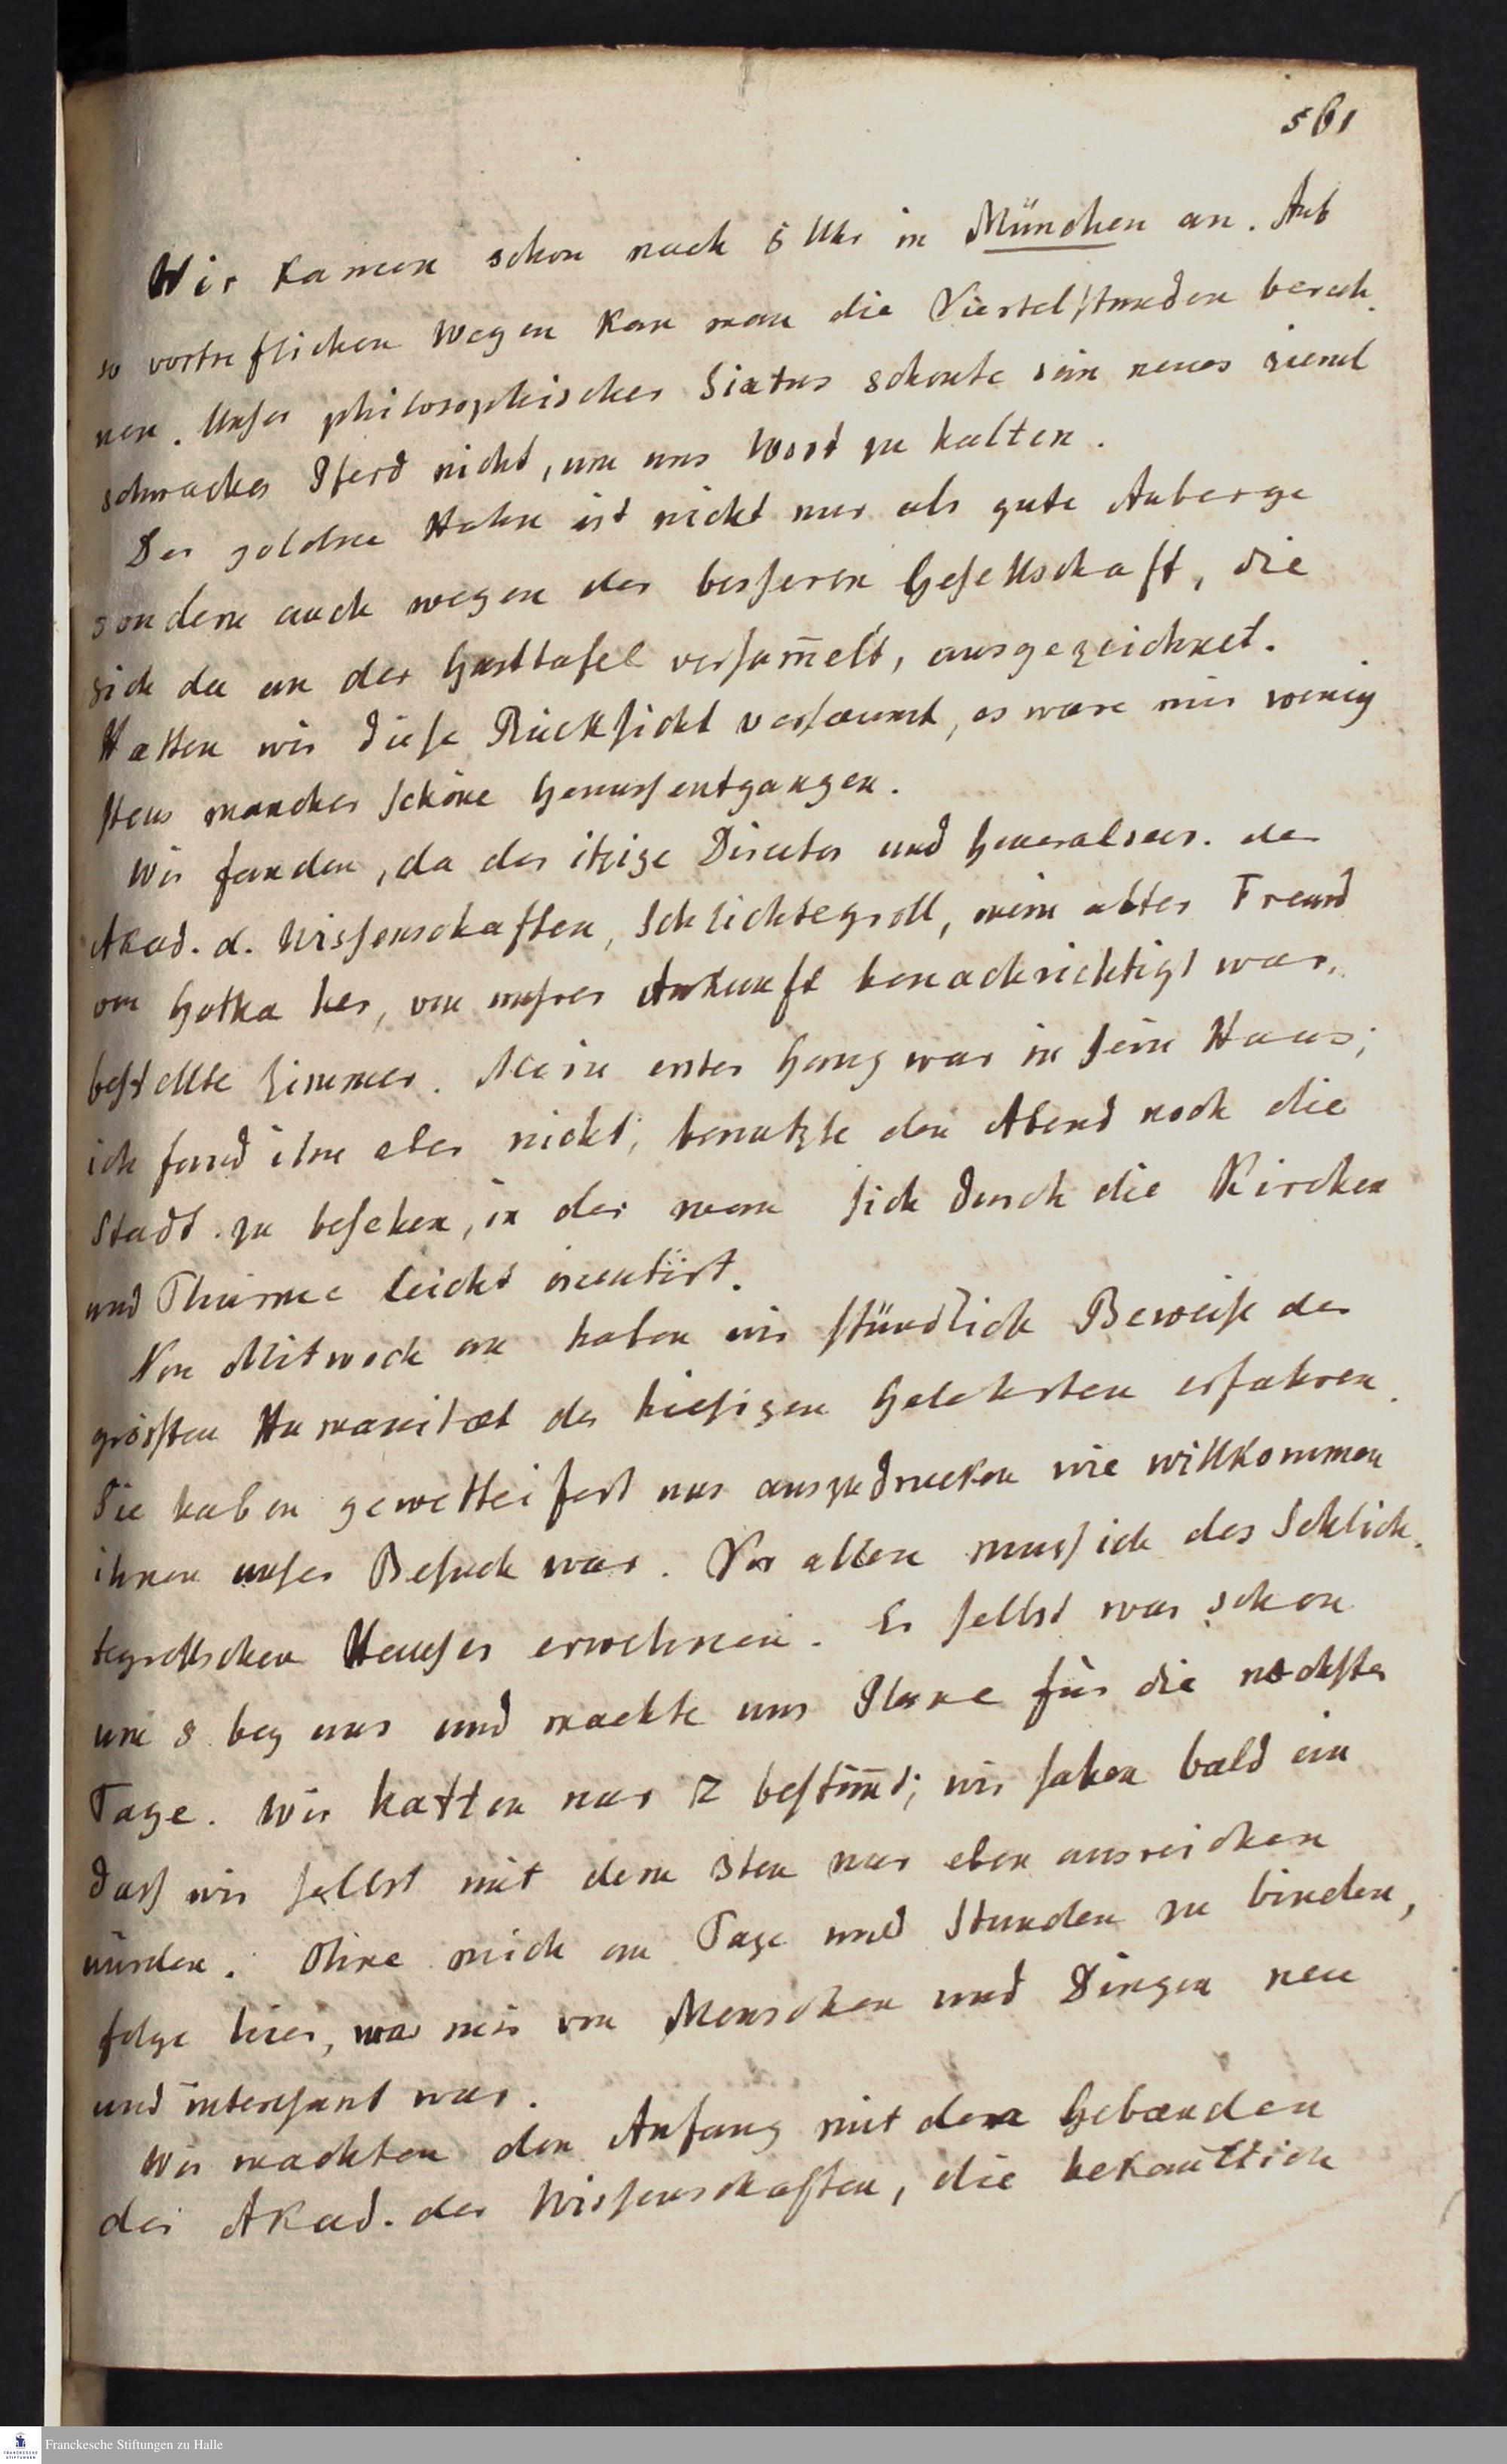 561
Wir kamen schon nach 5 Uhr in München an. Auf
so vortreflichen Wegen kan man die Viertelstunden berech-
nen. Unser philosophischer Sixtus schonte sein neues ziemł
schwaches Pferd nicht, um uns Wort zu halten.
Der goldne Hahn ist nicht nur als gute Auberge
sondern auch wegen der besseren Gesellschaft, die
sich da an der Gasttafel versam̅elt, ausgezeichnet.
Hætten wir diese Rücksicht versæumt, es wære mir wenig
stens mancher schöne Genuss entgangen.
Wir fanden, da der itzige Director und Generalsecr. der
Akad. d. Wissenschaften, Schlichtegroll, mein alter Freund
von Gotha her, von unsrer Ankunft benachrichtigt war,
bestellte Zimmer. Mein erster Gang war in sein Haus;
ich fand ihn aber nicht; benutzte den Abend noch die
Stadt zu besehen, in der man sich durch die Kirchen
und Thürme leicht orientirt.
Von Mitwoch an haben wir stündlich Beweise der
grössten Humanitæt der hiesigen Gelehrten erfahren.
Sie haben gewetteifert uns auszudrucken wie willkommen
ihnen unser Besuch war. Vor allen muss ich des Schlich-
tegrollschen Hauses erwehnen. Er selbst war schon
um 8 bey uns und machte uns Plane für die næchsten
Tage. Wir hatten nur 2 bestim̅t; wir sahen bald ein
dass wir selbst mit dem 3ten nur eben ausreichen
würden. Ohne mich an Tage und Stunden zu binden,
folge hier, was mir von Menschen und Dingen neu
und interessant war.
Wir machten den Anfang mit den Gebæuden
der Akad. der Wissenschaften, die bekan̅tlich
Franckesche Stiftungen zu Halle